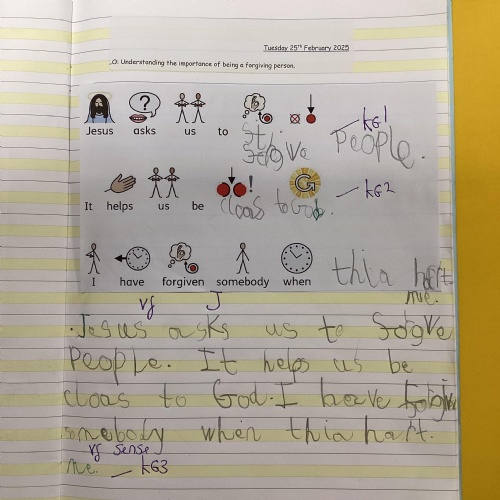 Tuesday 25th February 2025
LO: Understanding the importance of being a forgiving person.
KG1
Jesus asks us to fdgve People.
KG2
It helps us be cloas to God.
I have forgiven somebody when thia hart
me.
vf J
.Jesus asks us to fdgve
People. It helps us be
cloas to God. I have
somebody when thia hart.
vf sense
me. KG3